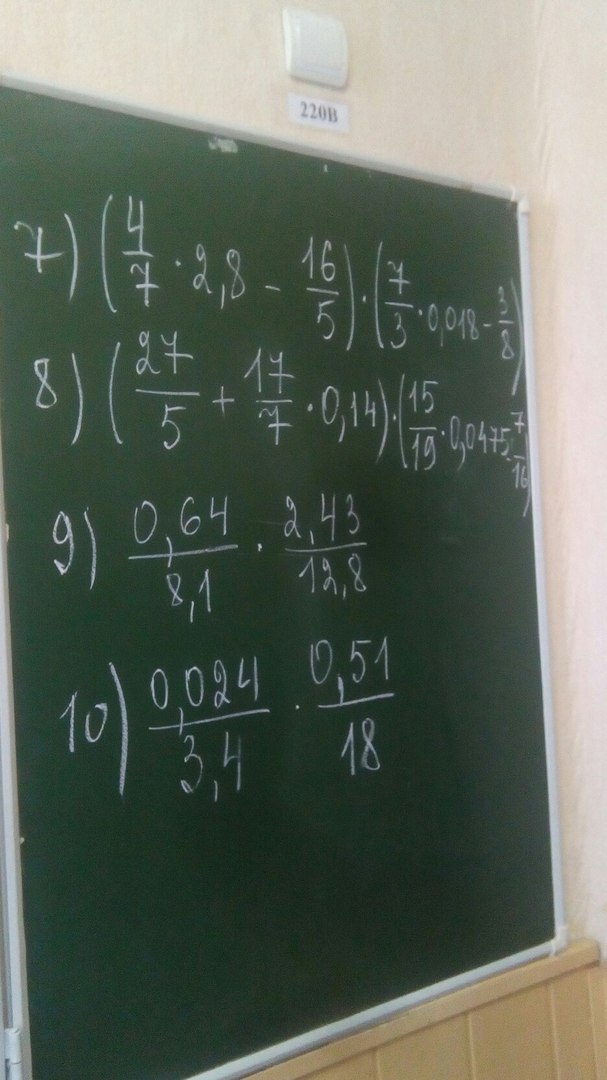 220В
7) (4/7 · 2,8 - 16/5) · (7/3 · 0,018 - 3/8)
8) (27/5 + 17/7 · 0,14) · (15/19 · 0,0475 - 7/16)
9) 0,64/8,1 · 2,43/12,8
10) 0,024/3,4 · 0,51/18